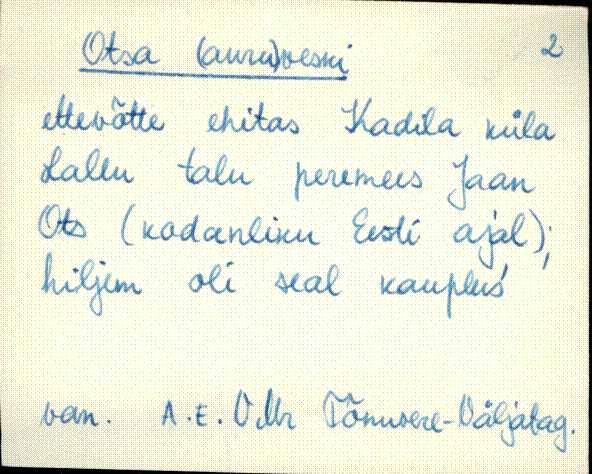 Otsa (auru)veski 2
ettevõtte ehitas Kadila küla
Lallu talu peremees Jaan
Ots (kodanliku Eesti ajal);
hiljem oli seal kauplus
van. A.E. VMr Tõnuvere-Väljatag.